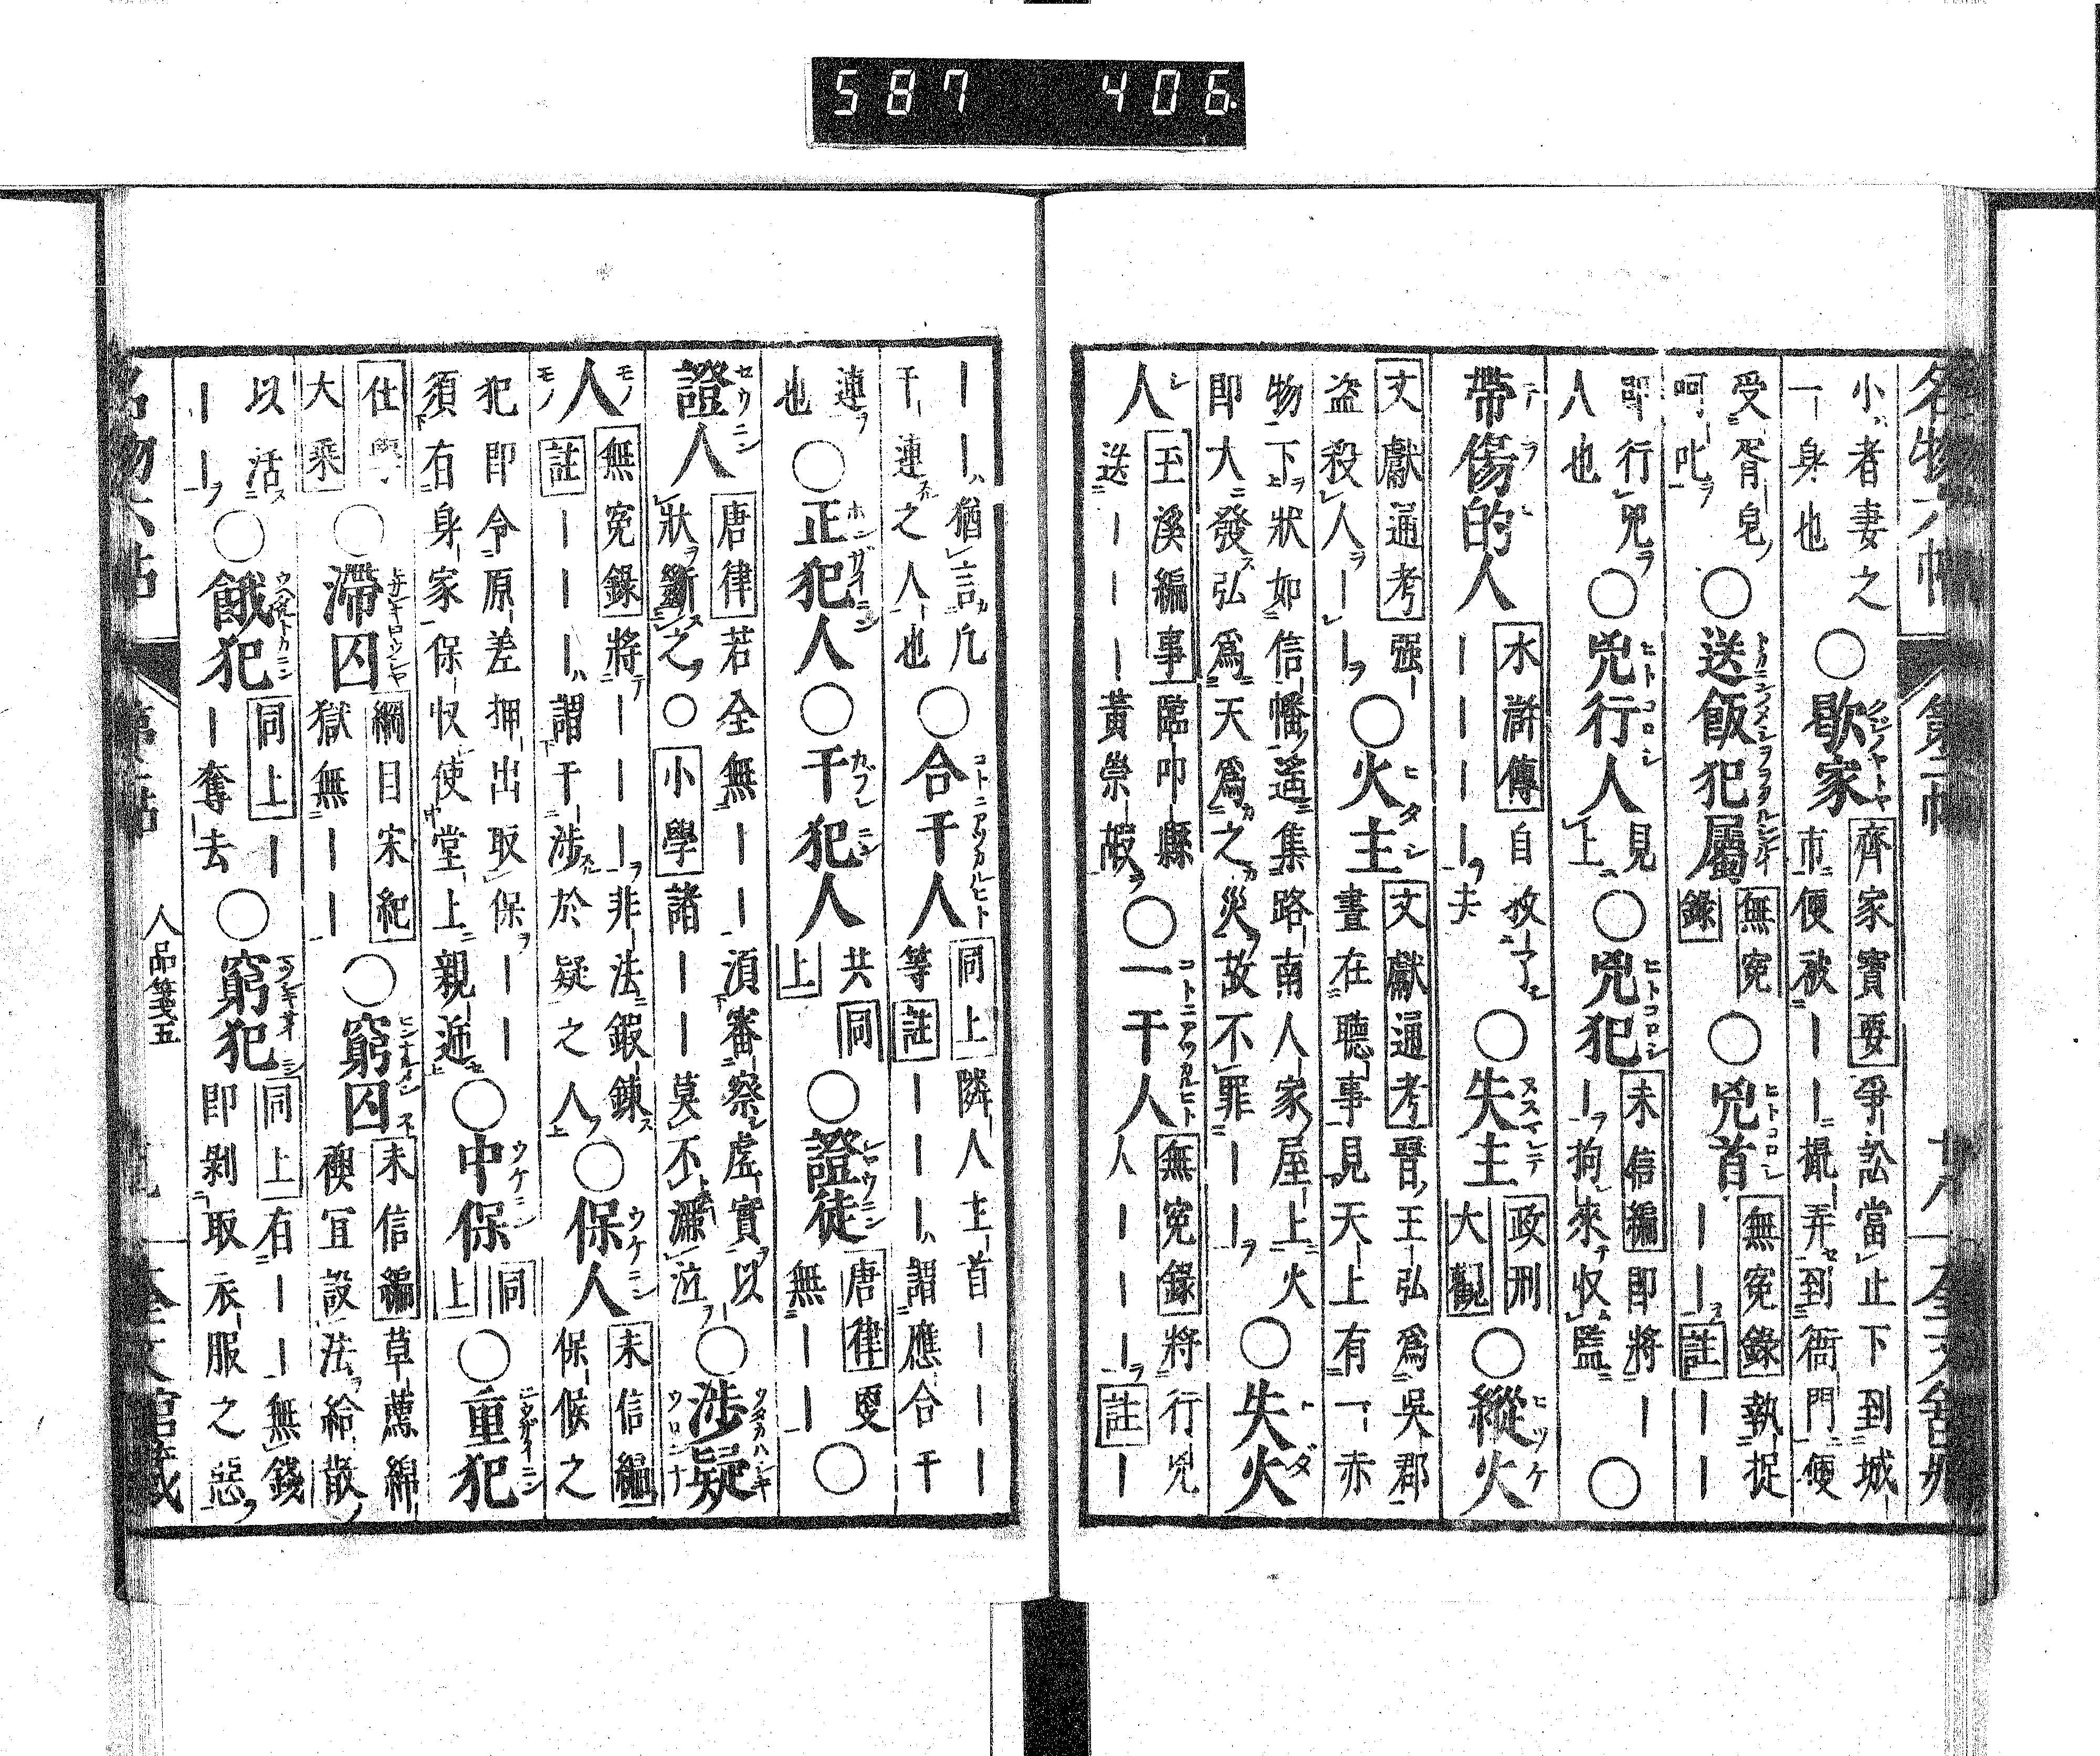 名物六帖 第二帖
小者妻之一身也○歇家 齊家寶要 爭訟當止下到城市便被——撮弄到衙門便
受胥皂呵叱○送飯犯屬 無寃錄○兇首 無寃錄 執捉——註——
即行兇人也○兇行人 見上○兇犯 未信編 即將——拘來収監○
帶傷的人 水滸傳 自攺了————夫○失主 政刑大觀○縱火
文獻通考 强盜殺人——○火主 文獻通考 晉王弘為吳郡晝在聽事見天上有一赤
物下狀如信幡遥集路南人家屋上火即大發弘為天為之災故不罪——○失火
人 王溪編事 臨卭縣送———黃崇嘏○一干人 無寃錄 將行兇人———註—
——猶言凢干連之人也○合干人 同上 隣人主首———等註———謂應合干
連也○正犯人○干犯人 共同上○證徒 唐律 更無——○
證人 唐律 若全無——湏審察虛實以狀斷之○小學 諸——莫不泣○涉疑
人 無寃錄 將———非法鍜鍊註———謂干涉於疑之人○保人 未信編 保候之
犯即令原差押出取保——須有身家保収使堂上親逓○中保 同上○重犯
仕學大乘○滯囚 綱目宋紀 獄無——○窮囚 未信編 草薦綿襖冝設法給散
以活——○餓犯 同上 ——奪去○窮犯 同上 右——無錢即剝取衣服之惡
名物六帖 第二帖 人品箋五
587 406.